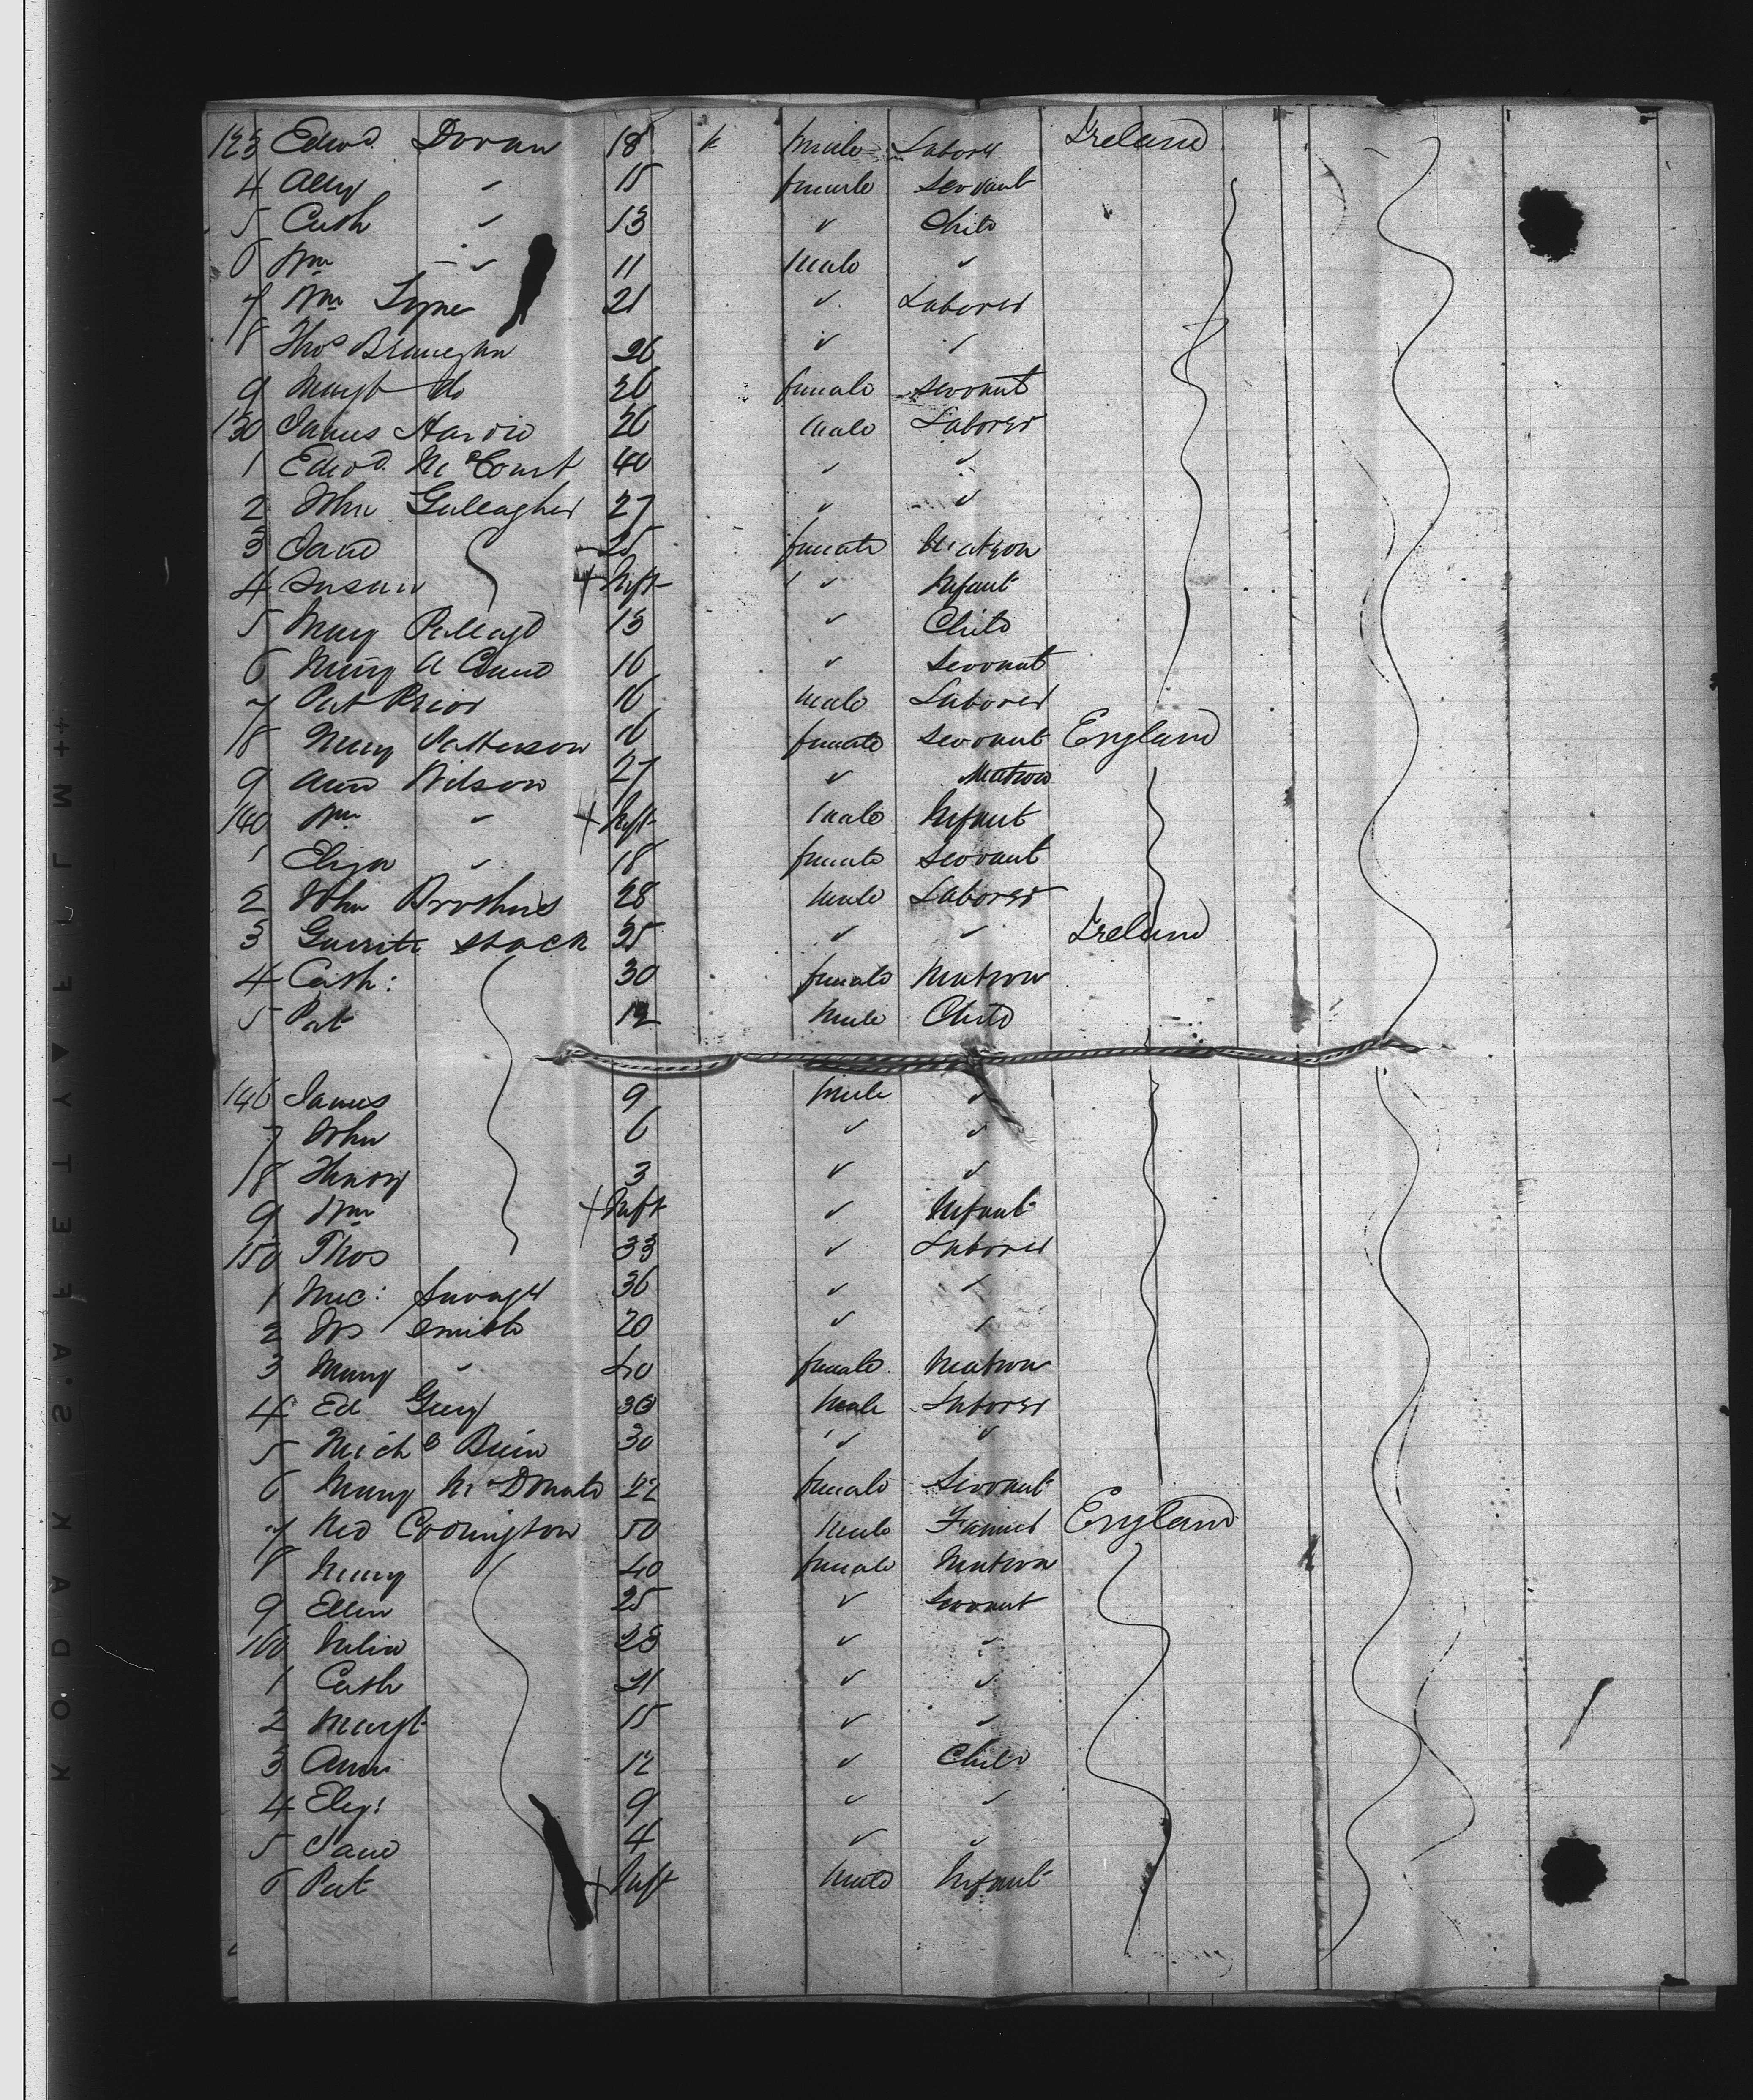 123 Edwd Doran 18 male Laborer Ireland
4 Ally " 15 female Servant
5 Cath " 13 " Child
6 Wm " 11 male "
7 Wm 21 " Laborer
8 Thos Branegan 26 " "
9 Margt do 26 female Servant
130 James 26 male Laborer
1 Edwd McCourt 40 " "
2 John Gallagher 27 " "
3 Jane 25 female Matron
4 Susan + Inft " Infant
5 Mary 13 " Child
6 Mary A 16 " Servant
7 Pat Prior 16 male Laborer
8 Mary Patterson 16 female Servant England
9 Ann Wilson 27 " Matron
140 Wm " + Inft male Infant
1 Eliza " 18 female Servant
2 John Brothers 28 male Laborer
3 Stack 35 " " Ireland
4 Cath: 30 female Matron
5 Pat 12 male Child
146 James 9 male "
7 John 6 " "
8 Henry 3 " "
9 Wm + Inft " Infant
150 Thos 33 " Laborer
1 Mic: Savage 36 " "
2 Smith 20 " "
3 Mary " 40 female Matron
4 Ed 30 male Laborer
5 Mich 30 " "
6 Mary McDonald 22 female Servant
7 Codrington 50 male Farmer England
8 Mary 40 female Matron
9 Ellen 25 " Servant
160 23 " "
1 Cath 21 " "
2 Margt 15 " "
3 Ann 12 " Child
4 Eliz: 9 " "
5 Jane 4 " "
6 Pat + Inft male Infant
KODAK·SAFETY▲FILM++